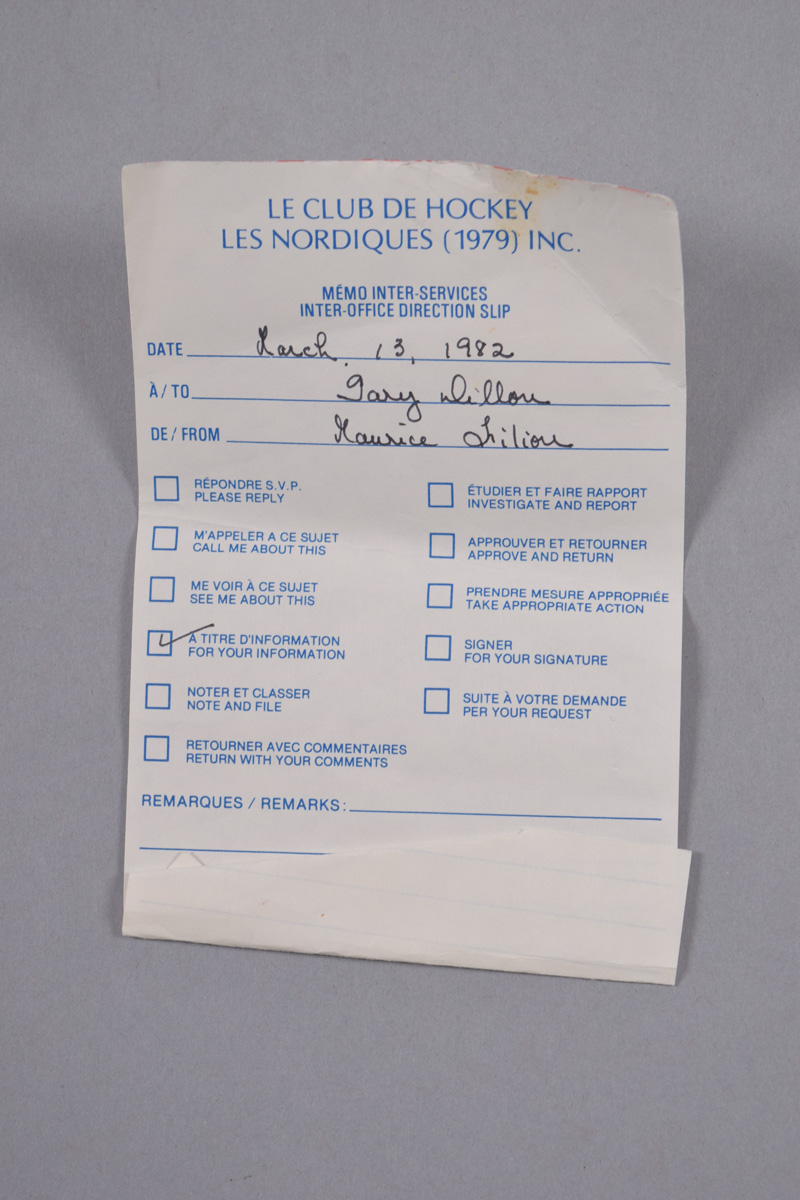 LE CLUB DE HOCKEY
LES NORDIQUES (1979) INC.
MÉMO INTER-SERVICES
INTER-OFFICE DIRECTION SLIP
DATE March 13, 1982
À / TO Gary Dillon
DE / FROM Maurice Filion
RÉPONDRE S.V.P.
PLEASE REPLY
M'APPELER A CE SUJET
CALL ME ABOUT THIS
ME VOIR À CE SUJET
SEE ME ABOUT THIS
À TITRE D'INFORMATION
FOR YOUR INFORMATION
NOTER ET CLASSER
NOTE AND FILE
RETOURNER AVEC COMMENTAIRES
RETURN WITH YOUR COMMENTS
ÉTUDIER ET FAIRE RAPPORT
INVESTIGATE AND REPORT
APPROUVER ET RETOURNER
APPROVE AND RETURN
PRENDRE MESURE APPROPRIÉE
TAKE APPROPRIATE ACTION
SIGNER
FOR YOUR SIGNATURE
SUITE À VOTRE DEMANDE
PER YOUR REQUEST
REMARQUES / REMARKS: